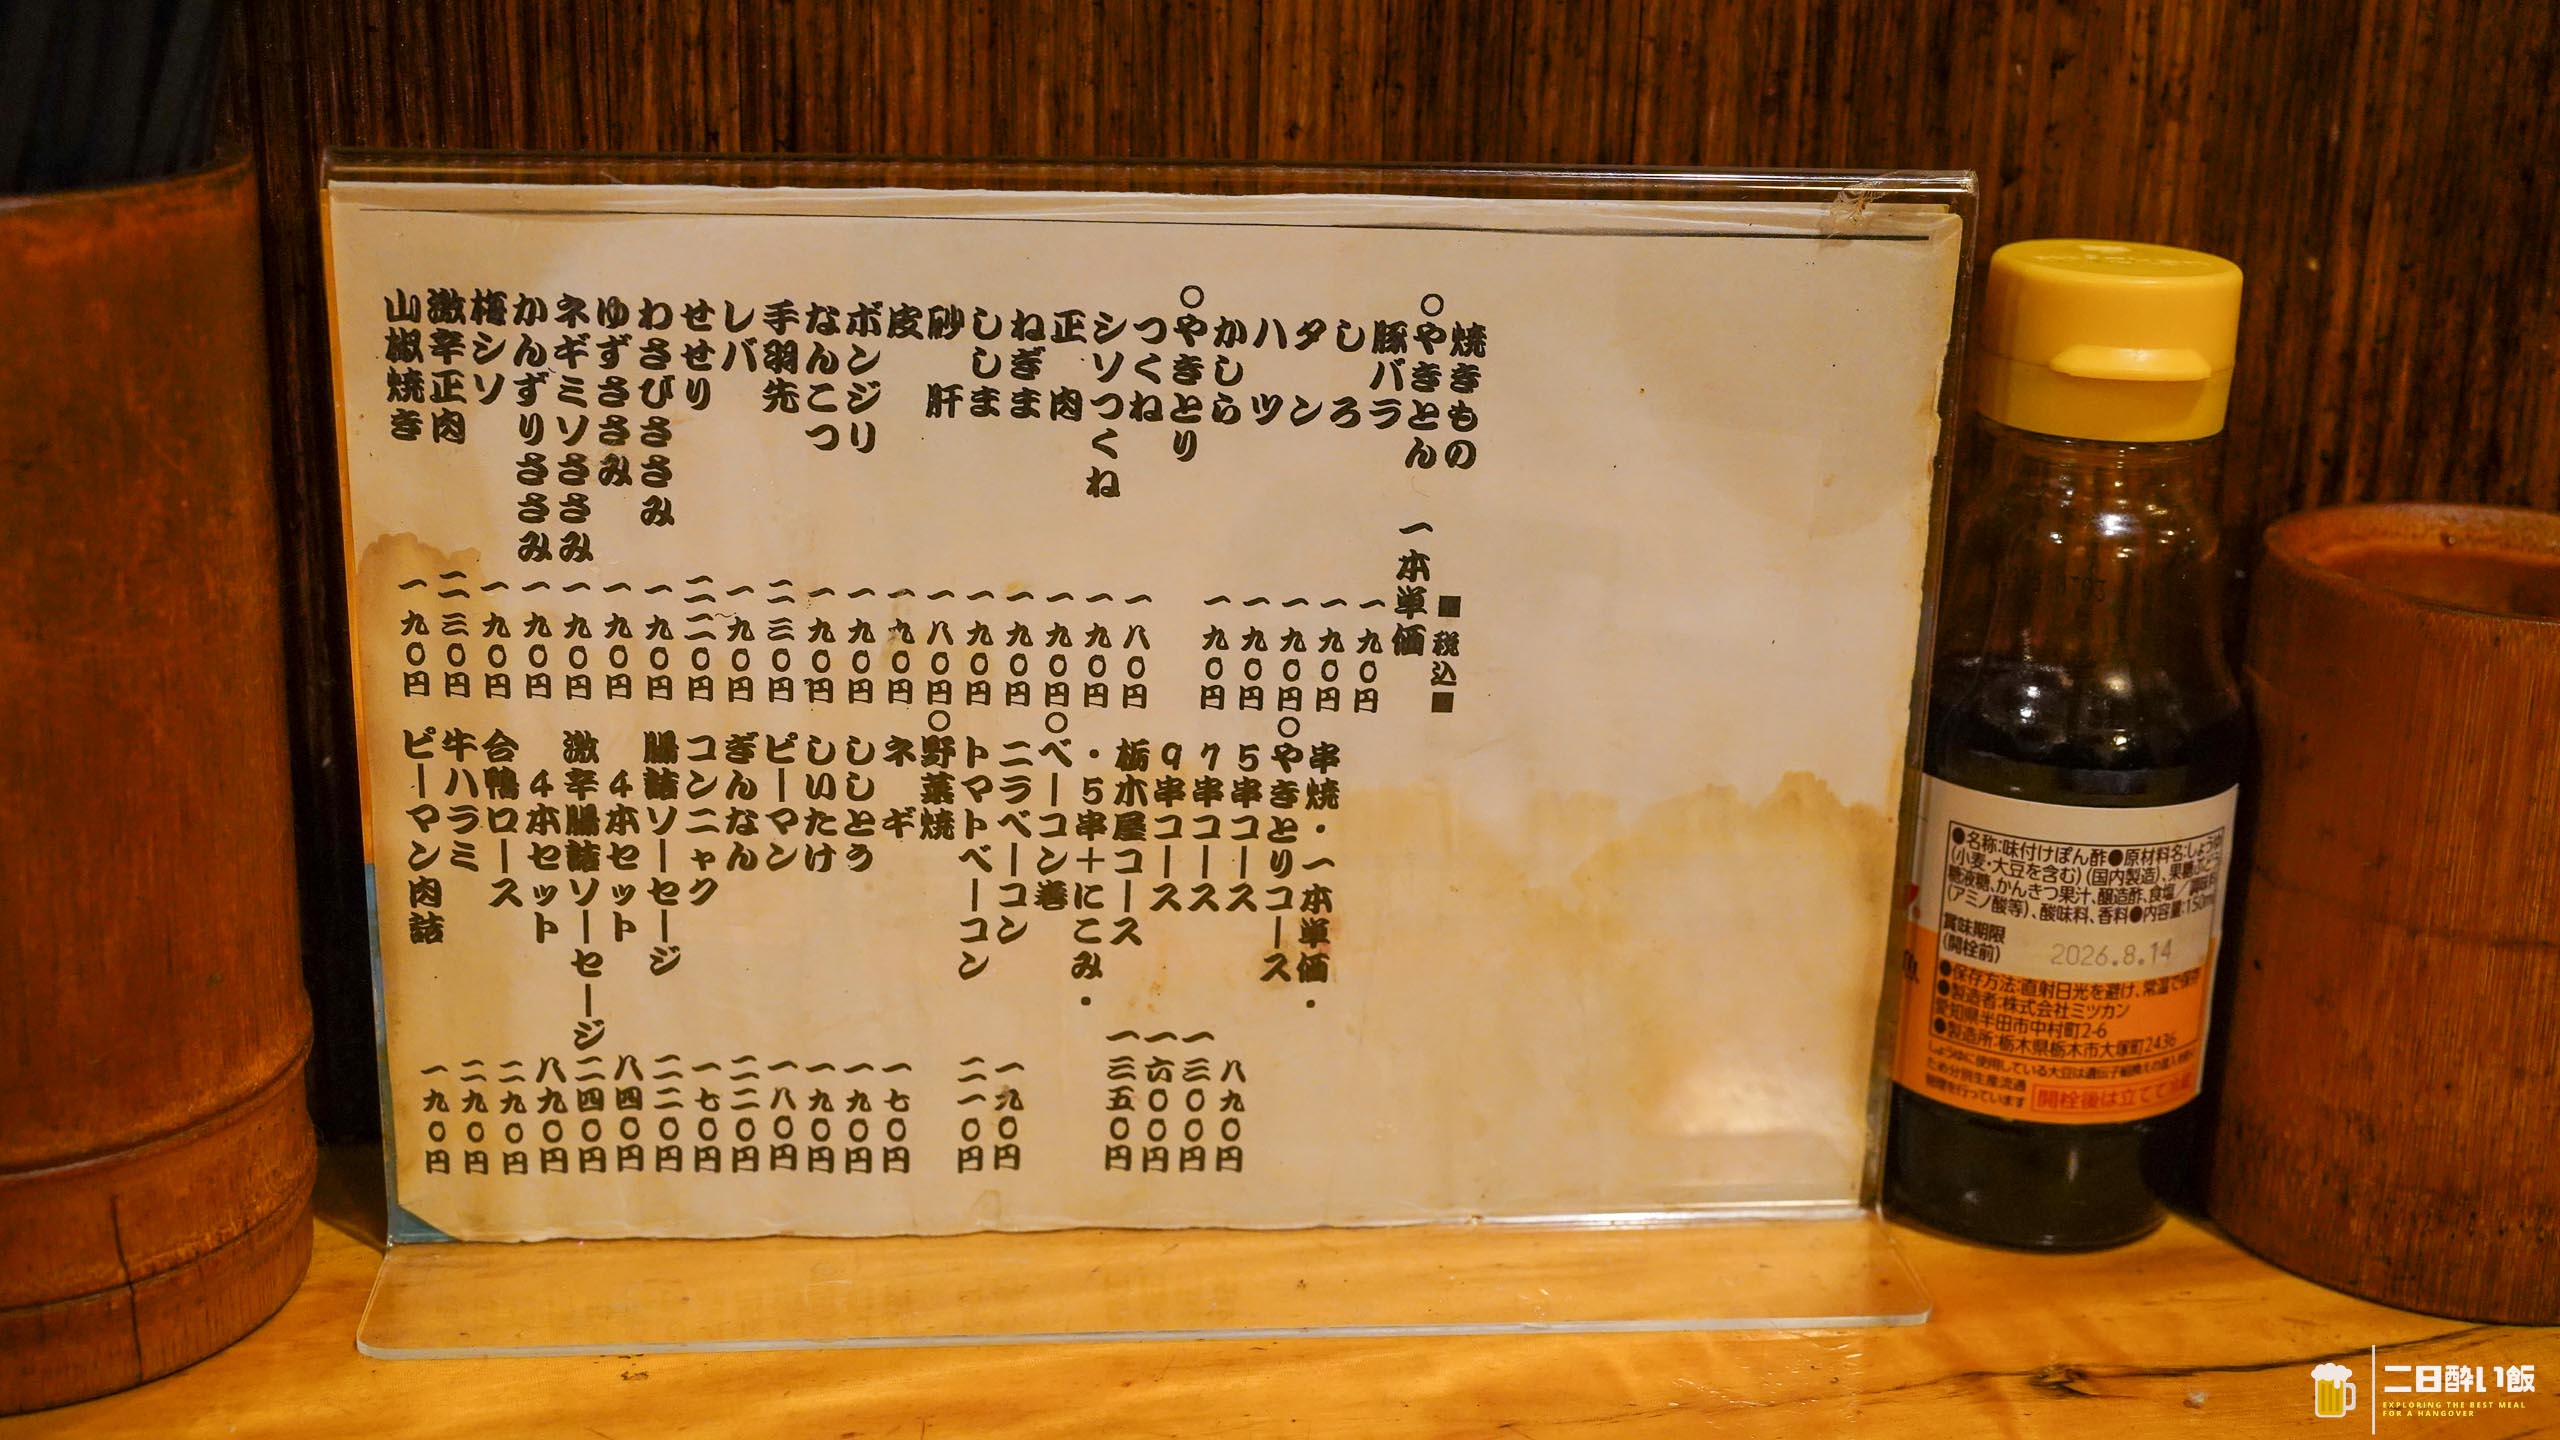 焼きもの ■税込■
○やきとん 一本単価
豚バラ 一九〇円
しろ 一九〇円
タン 一九〇円
ハツ 一九〇円
かしら 一九〇円
○やきとり
つくね 一八〇円
シソつくね 一九〇円
正肉 一九〇円
ねぎま 一九〇円
ししま 一九〇円
砂肝 一八〇円
皮 一九〇円
ボンジリ 一九〇円
なんこつ 一九〇円
手羽先 二三〇円
レバ 一九〇円
せせり 二二〇円
わさびささみ 一九〇円
ゆずささみ 一九〇円
ネギミソささみ 一九〇円
かんずりささみ 一九〇円
梅シソ 一九〇円
激辛正肉 二三〇円
山椒焼き 一九〇円
串焼・一本単価・
○やきとりコース
5串コース 八九〇円
7串コース 一三〇〇円
9串コース 一六〇〇円
栃木屋コース 一三五〇円
・5串＋にこみ・
○ベーコン巻
ニラベーコン 一九〇円
トマトベーコン 二一〇円
○野菜焼
ネギ 一七〇円
ししとう 一九〇円
しいたけ 一九〇円
ピーマン 一八〇円
ぎんなん 二二〇円
コンニャク 一七〇円
腸詰ソーセージ 二二〇円
4本セット 八四〇円
激辛腸詰ソーセージ 二四〇円
4本セット 八九〇円
合鴨ロース 二九〇円
牛ハラミ 二九〇円
ピーマン肉詰 一九〇円
●名称:味付けぽん酢●原材料名:しょうゆ
(小麦・大豆を含む)(国内製造)、果糖ぶどう
糖液糖、かんきつ果汁、醸造酢、食塩／調味料
(アミノ酸等)、酸味料、香料●内容量:150ml
賞味期限
(開栓前) 2026.8.14
●保存方法:直射日光を避け、常温で保存
●製造者:株式会社ミツカン
愛知県半田市中村町2-6
●製造所:栃木県栃木市大塚町2436
しょうゆに使用している大豆は遺伝子組換えの混入を防ぐ
ため分別生産流通
管理を行っています
開栓後は立てて冷蔵
二日酔い飯
EXPLORING THE BEST MEAL
FOR A HANGOVER